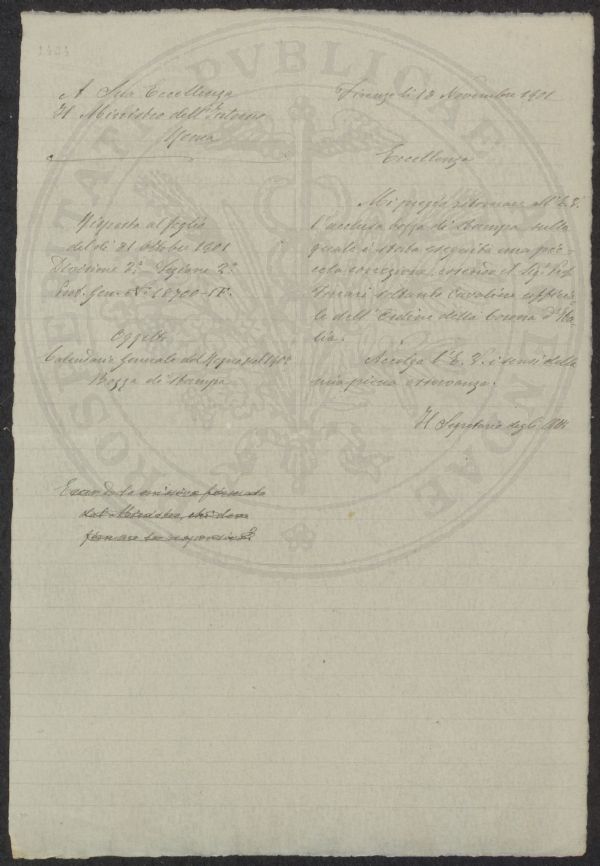 1404
A Sua Eccellenza
Il Ministro dell'Interno
Roma
Firenze li 12 Novembre 1901
Eccellenza
Risposta al foglio
del dì 31 Ottobre 1901
Divisione 2ª Sezione 2ª
Prot. Gen. N° 18700-
Oggetto
Calendario Generale del Regno pel 1902
Bozza di stampa
Mi pregio ritornare all'E. V.
l'acclusa bozza di stampa sulla
quale è stata eseguita una pic-
cola correzione, essendo il Sig. Prof.
soltanto Cavaliere uffizia-
le dell'Ordine della Corona d'Ita-
lia.
Accolga l'E. V. i sensi della
mia piena osservanza.
Il Segretario degli Atti
Essendo la firmata
dal chi deve
firmare la risposta?
PROSPERITATI PVBLICAE